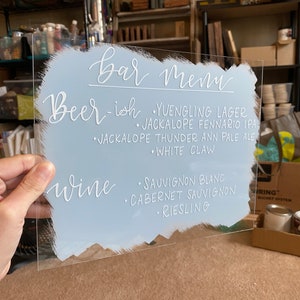 bar menu
Beer-ish • YUENGLING LAGER
• JACKALOPE FENNARIO IPA
• JACKALOPE THUNDER ANN PALE ALE
• WHITE CLAW
wine • SAUVIGNON BLANC
• CABERNET SAUVIGNON
RIESLING